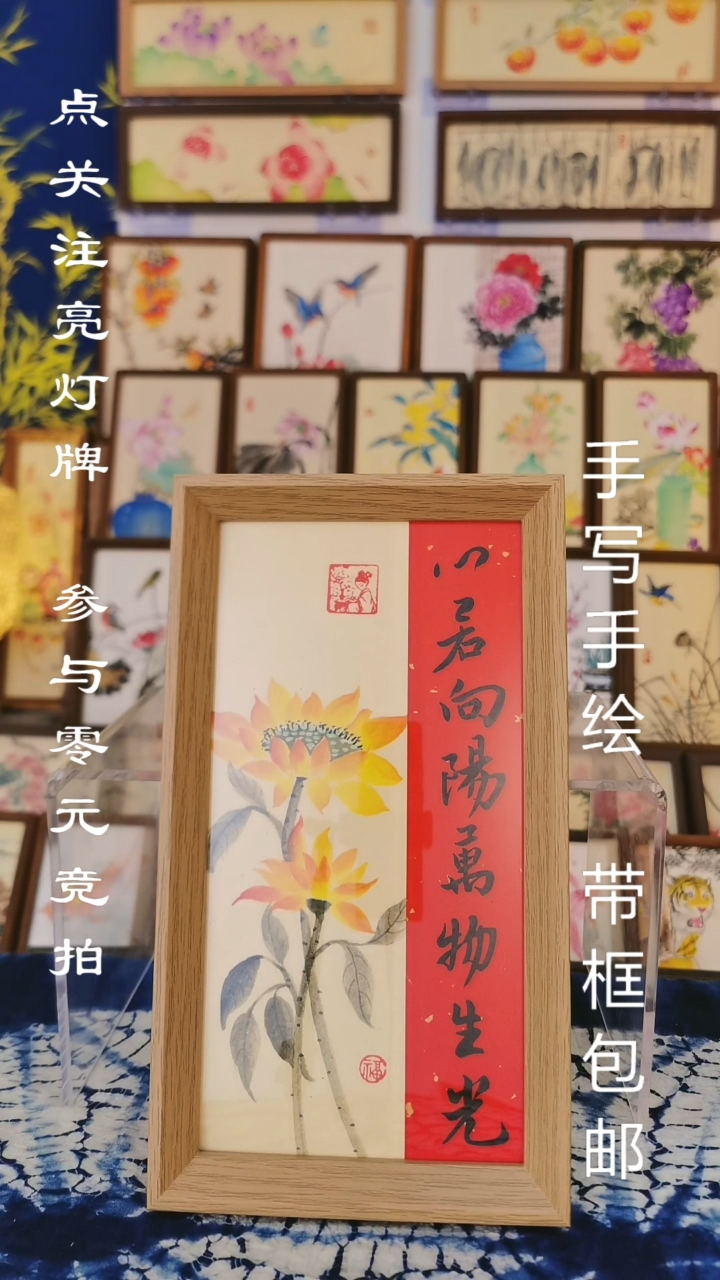 点关注亮灯牌 参与零元竞拍
手写手绘 带框包邮
心若向陽萬物生光
福